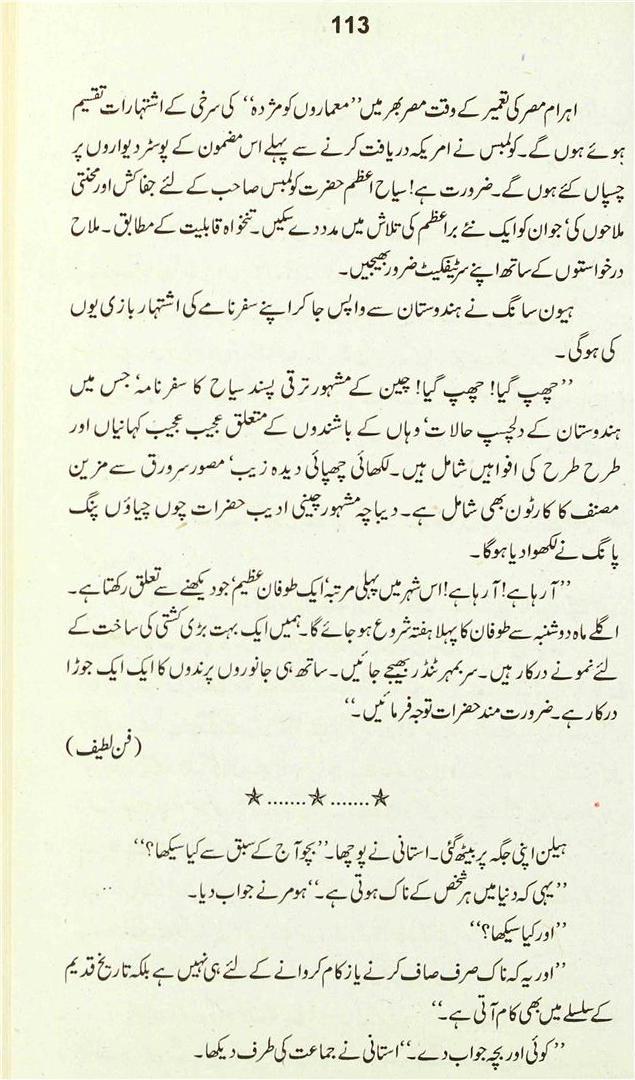 113
اہرام مصر کی تعمیر کے وقت مصر بھر میں ’’معماروں کو مژدہ‘‘ کی سرخی کے اشتہارات تقسیم
ہوئے ہوں گے۔ کولمبس نے امریکہ دریافت کرنے سے پہلے اس مضمون کے پوسٹر دیواروں پر
چسپاں کئے ہوں گے۔ ضرورت ہے! سیاح اعظم حضرت کولمبس صاحب کے لئے جفاکش اور محنتی
ملاحوں کی‘ جو ان کو ایک نئے براعظم کی تلاش میں مدد دے سکیں۔ تنخواہ قابلیت کے مطابق۔ ملاح
درخواستوں کے ساتھ اپنے سرٹیفکیٹ ضرور بھیجیں۔
ہیون سانگ نے ہندوستان سے واپس جا کر اپنے سفرنامے کی اشتہار بازی یوں
کی ہوگی۔
’’چھپ گیا! چھپ گیا! چین کے مشہور ترقی پسند سیاح کا سفرنامہ‘ جس میں
ہندوستان کے دلچسپ حالات‘ وہاں کے باشندوں کے متعلق عجیب عجیب کہانیاں اور
طرح طرح کی افواہیں شامل ہیں۔ لکھائی چھپائی دیدہ زیب‘ مصور سرورق سے مزین
مصنف کا کارٹون بھی شامل ہے۔ دیباچہ مشہور چینی ادیب حضرات چوں چیاؤں پنگ
پانگ نے لکھوا دیا ہوگا۔
’’آ رہا ہے! آ رہا ہے! اس شہر میں پہلی مرتبہ‘ ایک طوفان عظیم‘ جو دیکھنے سے تعلق رکھتا ہے۔
اگلے ماہ دو شنبہ سے طوفان کا پہلا ہفتہ شروع ہو جائے گا۔ ہمیں ایک بہت بڑی کشتی کی ساخت کے
لئے نمونے درکار ہیں۔ سر بمہر ٹنڈر بھیجے جائیں۔ ساتھ ہی جانوروں پرندوں کا ایک ایک جوڑا
درکار ہے۔ ضرورت مند حضرات توجہ فرمائیں۔‘‘
(فن لطیف)
★.......★.......★
ہیلن اپنی جگہ پر بیٹھ گئی۔ استانی نے پوچھا۔ ’’بچو آج کے سبق سے کیا سیکھا؟‘‘
’’یہی کہ دنیا میں ہر شخص کے ناک ہوتی ہے۔‘‘ ہومر نے جواب دیا۔
’’اور کیا سیکھا؟‘‘
’’اور یہ کہ ناک صرف صاف کرنے یا زکام کروانے کے لئے ہی نہیں ہے بلکہ تاریخ قدیم
کے سلسلے میں بھی کام آتی ہے۔‘‘
’’کوئی اور بچہ جواب دے۔‘‘ استانی نے جماعت کی طرف دیکھا۔